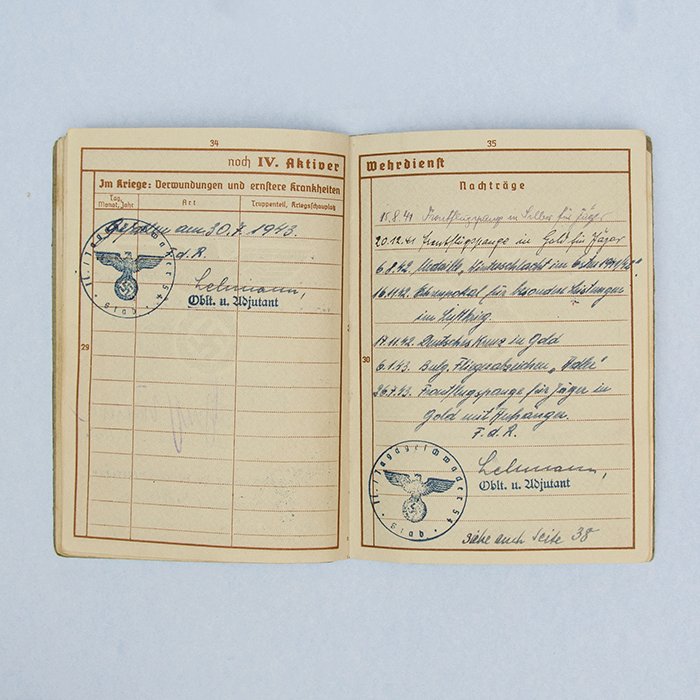 34
noch IV. Aktiver
Im Kriege: Verwundungen und ernstere Krankheiten
Tag, Monat, Jahr
Art
Truppenteil, Kriegsschauplatz
Gefallen am 30.7.1943.
F.d.R.
Lehmann,
Oblt. u. Adjutant
II./Jagdgeschwader 54
29
35
Wehrdienst
Nachträge
15.8.41 Frontflugspange in Silber für Jäger
20.12.41 Frontflugspange in Gold für Jäger
6.8.42. Medaille "Winterschlacht im Osten 1941/42"
16.11.42. Ehrenpokal für besondere Leistungen
im Luftkrieg.
17.11.42. Deutsches Kreuz in Gold
6.1.43. Bulg. Fliegerabzeichen "Adler"
26.7.43. Frontflugspange für Jäger in
Gold mit Anhänger.
F.d.R.
30
Lehmann,
Oblt. u. Adjutant
II./Jagdgeschwader 54
siehe auch Seite 38